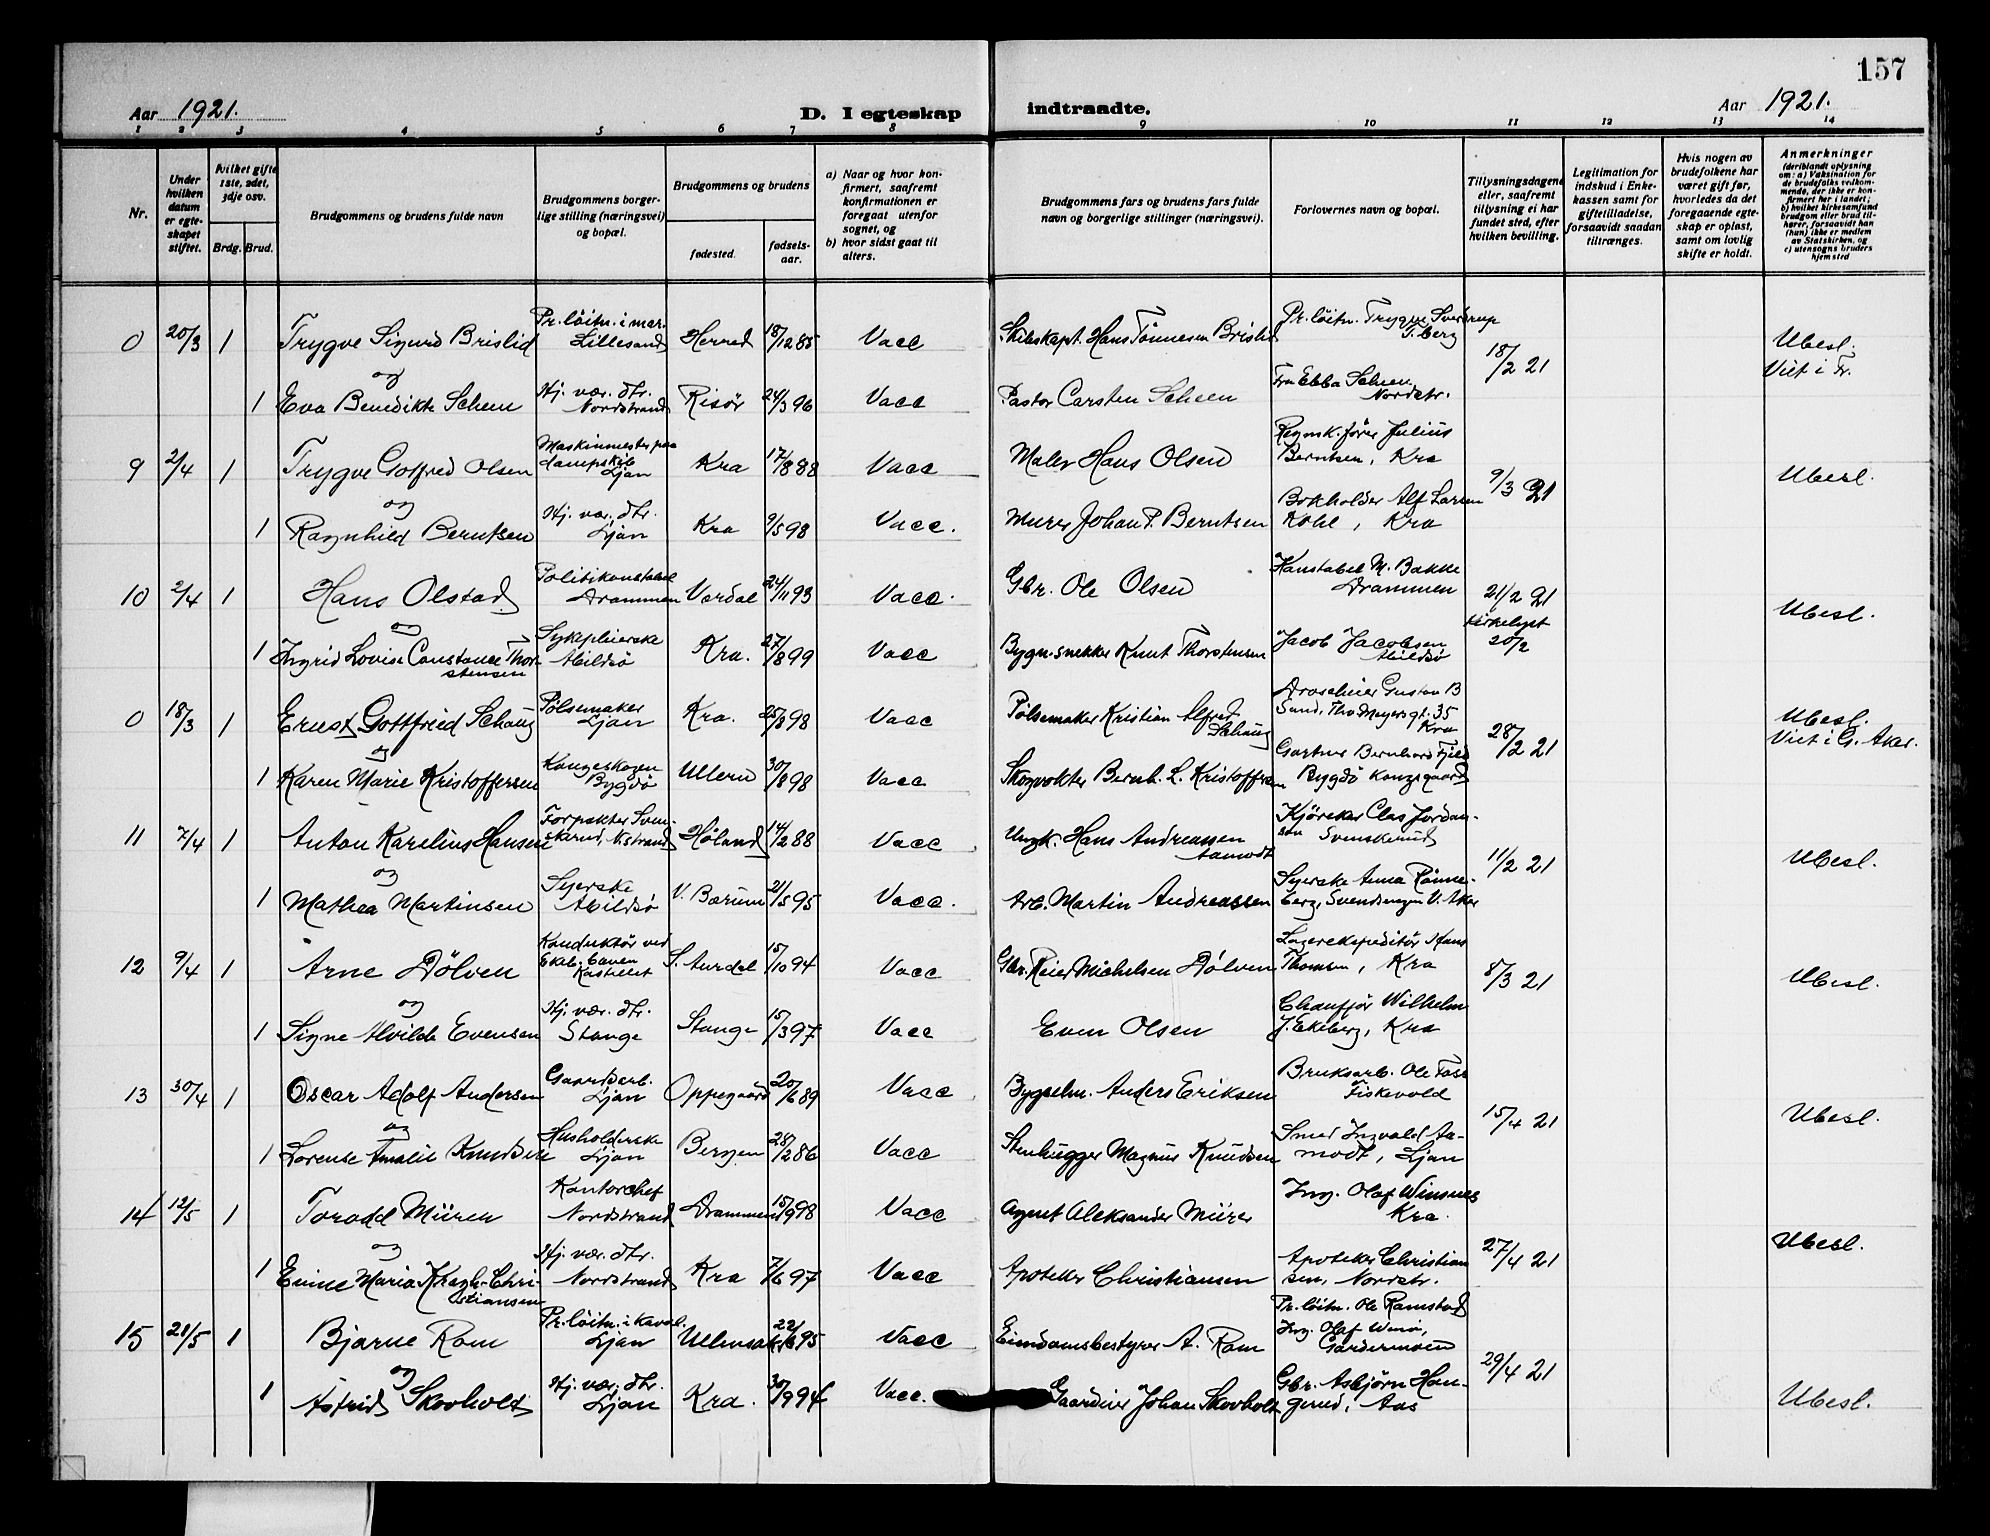 157
Aar 1921.
D. I egteskap indtraadte.
Aar 1921.
1 2 3 4 5 6 7 8 9 10 11 12 13 14
Nr.
Under hvilken datum er egteskapet stiftet.
Hvilket gifte 1ste, 2det, 3dje osv.
Brdg. Brud.
Brudgommens og brudens fulde navn
Brudgommens borgerlige stilling (næringsvei) og bopæl.
Brudgommens og brudens
fødested. fødselsaar.
a) Naar og hvor konfirmert, saafremt konfirmationen er foregaat utenfor sognet, og
b) hvor sidst gaat til alters.
Brudgommens fars og brudens fars fulde navn og borgerlige stillinger (næringsvei).
Forlovernes navn og bopæl.
Tillysningsdagene eller, saafremt tillysning ei har fundet sted, efter hvilken bevilling.
Legitimation for indskud i Enkekassen samt for giftetilladelse, forsaavidt saadan tiltrænges.
Hvis nogen av brudefolkene har været gift før, hvorledes da det foregaaende egteskap er opløst, samt om lovlig skifte er holdt.
Anmerkninger
(deriblandt oplysning om: a) Vaksination for de brudefolks vedkommende, der ikke er konfirmert her i landet; b) hvilket kirkesamfund brudgom eller brud tilhører, forsaavidt han (hun) ikke er medlem av Statskirken, og c) utensogns bruders hjemsted
0 20/3 1 Trygve Sigurd Brislid Pr. löitn. i mar. Lillesand Herred 18/12 85 Vacc Skibskapt. Hans Tönnesen Brislid Pr. löitn. Trygve Sverdrup T. berg 18/2 21 Ubesl. Viet i Fr.
og
1 Eva Benedikte Scheen Hj. vær. dtr. Nordstrand Risör 24/3 96 Vacc Pastor Carsten Scheen Fru Ebba Scheen Nordstr.
9 2/4 1 Trygve Gotfred Olsen Maskinmester paa dampskib Ljan Kra 17/8 88 Vacc Maler Hans Olsen Regnsk. förer Julius Berntsen, Kra 9/3 21 Ubesl.
og
1 Ragnhild Berntsen Hj. vær. dtr. Ljan Kra 9/5 98 Vacc. Murer Johan P. Berntsen Bokholder Alf Larsen Kohl, Kra
10 2/4 1 Hans Olstad Politikonstabel Drammen Værdal 24/11 93 Vacc. Gbr. Ole Olsen Konstabel M. Bakke Drammen 21/2 21 kirkelyst 20/2 Ubesl.
og
1 Ingrid Lovise Constance Thorstensen Sykepleierske Abildsö Kra. 27/8 99 Vacc Bygn. snekker Knut Thorstensen Jacob Jacobsen Abildsö
0 18/3 1 Ernst Gottfried Schaug Pölsemaker Ljan Kra. 25/8 98 Vacc Pölsemaker Kristian Alfred Schaug Droscheier Gustav B Sund, Tho. Meyersgt. 35 Kra 28/2 21 Ubesl. Viet i G. Aker.
og
1 Karen Marie Kristoffersen Kongeskogen Bygdö Ullern 30/8 98 Vacc Skogvokter Bernh. L. Kristoffersen Gartner Bernhard Fjeld Bygdö Kongsgaard
11 7/4 1 Anton Karelius Hansen Forpakter Svenskerud, N.strand Höland 14/2 88 Vacc Ungk. Hans Andreassen Aamodt Kjörekar Clas Jordansen Svenskerud 11/2 21 Ubesl.
og
1 Mathea Martinsen Syerske Abildsö V. Bærum 21/5 95 Vacc. Arb. Martin Andreassen Syerske Anna Rönneberg, Svendsengen V. Aker
12 9/4 1 Arne Dölven Konduktör ved Ekeb. banen Kastellet S. Aurdal 15/10 94 Vacc Gbr. Reier Michelsen Dölven Lagerekspeditör Hans Thomsen, Kra 8/3 21 Ubesl.
og
1 Signe Alvilde Evensen Hj. vær. dtr. Stange Stange 15/3 97 Vacc Even Olsen Chaufför Wilhelm J. Ekeberg, Kra
13 30/4 1 Oscar Adolf Andersen Gaardarb. Ljan Oppegaard 20/6 89 Vacc Bygselm. Anders Eriksen Bruksarb. Ole Foss Fiskevold 15/4 21 Ubesl.
og
1 Lorense Amalie Knudsen Husholderske Ljan Bergen 28/2 86 Vacc Stenhugger Magnus Knudsen Smed Ingvald Aamodt, Ljan
14 12/5 1 Torodd Mürer Kontorchef Nordstrand Drammen 15/9 98 Vacc Agent Aleksander Mürer Ing. Olaf Winsnes Kra. 27/4 21 Ubesl.
og
1 Emine Maria Kragh-Christiansen Hj. vær. dtr. Nordstrand Kra 7/6 97 Vacc Apoteker Christiansen Apoteker Christiansen, Nordstr.
15 21/5 1 Bjarne Rom Pr. löitn. i kaval. Ljan Ullensaker 22/6 95 Vacc Eiendomsbestyrer A. Rom Pr. löitn. Ole Ramstad Ing. Olaf Gardermoen 29/4 21
og
1 Astrid Skovholt Hj. vær. dtr. Ljan Kra. 30/9 94 Vacc. Gaardeier Johan Skovholt Gbr. Asbjörn Hangerud, Aas Ubesl.